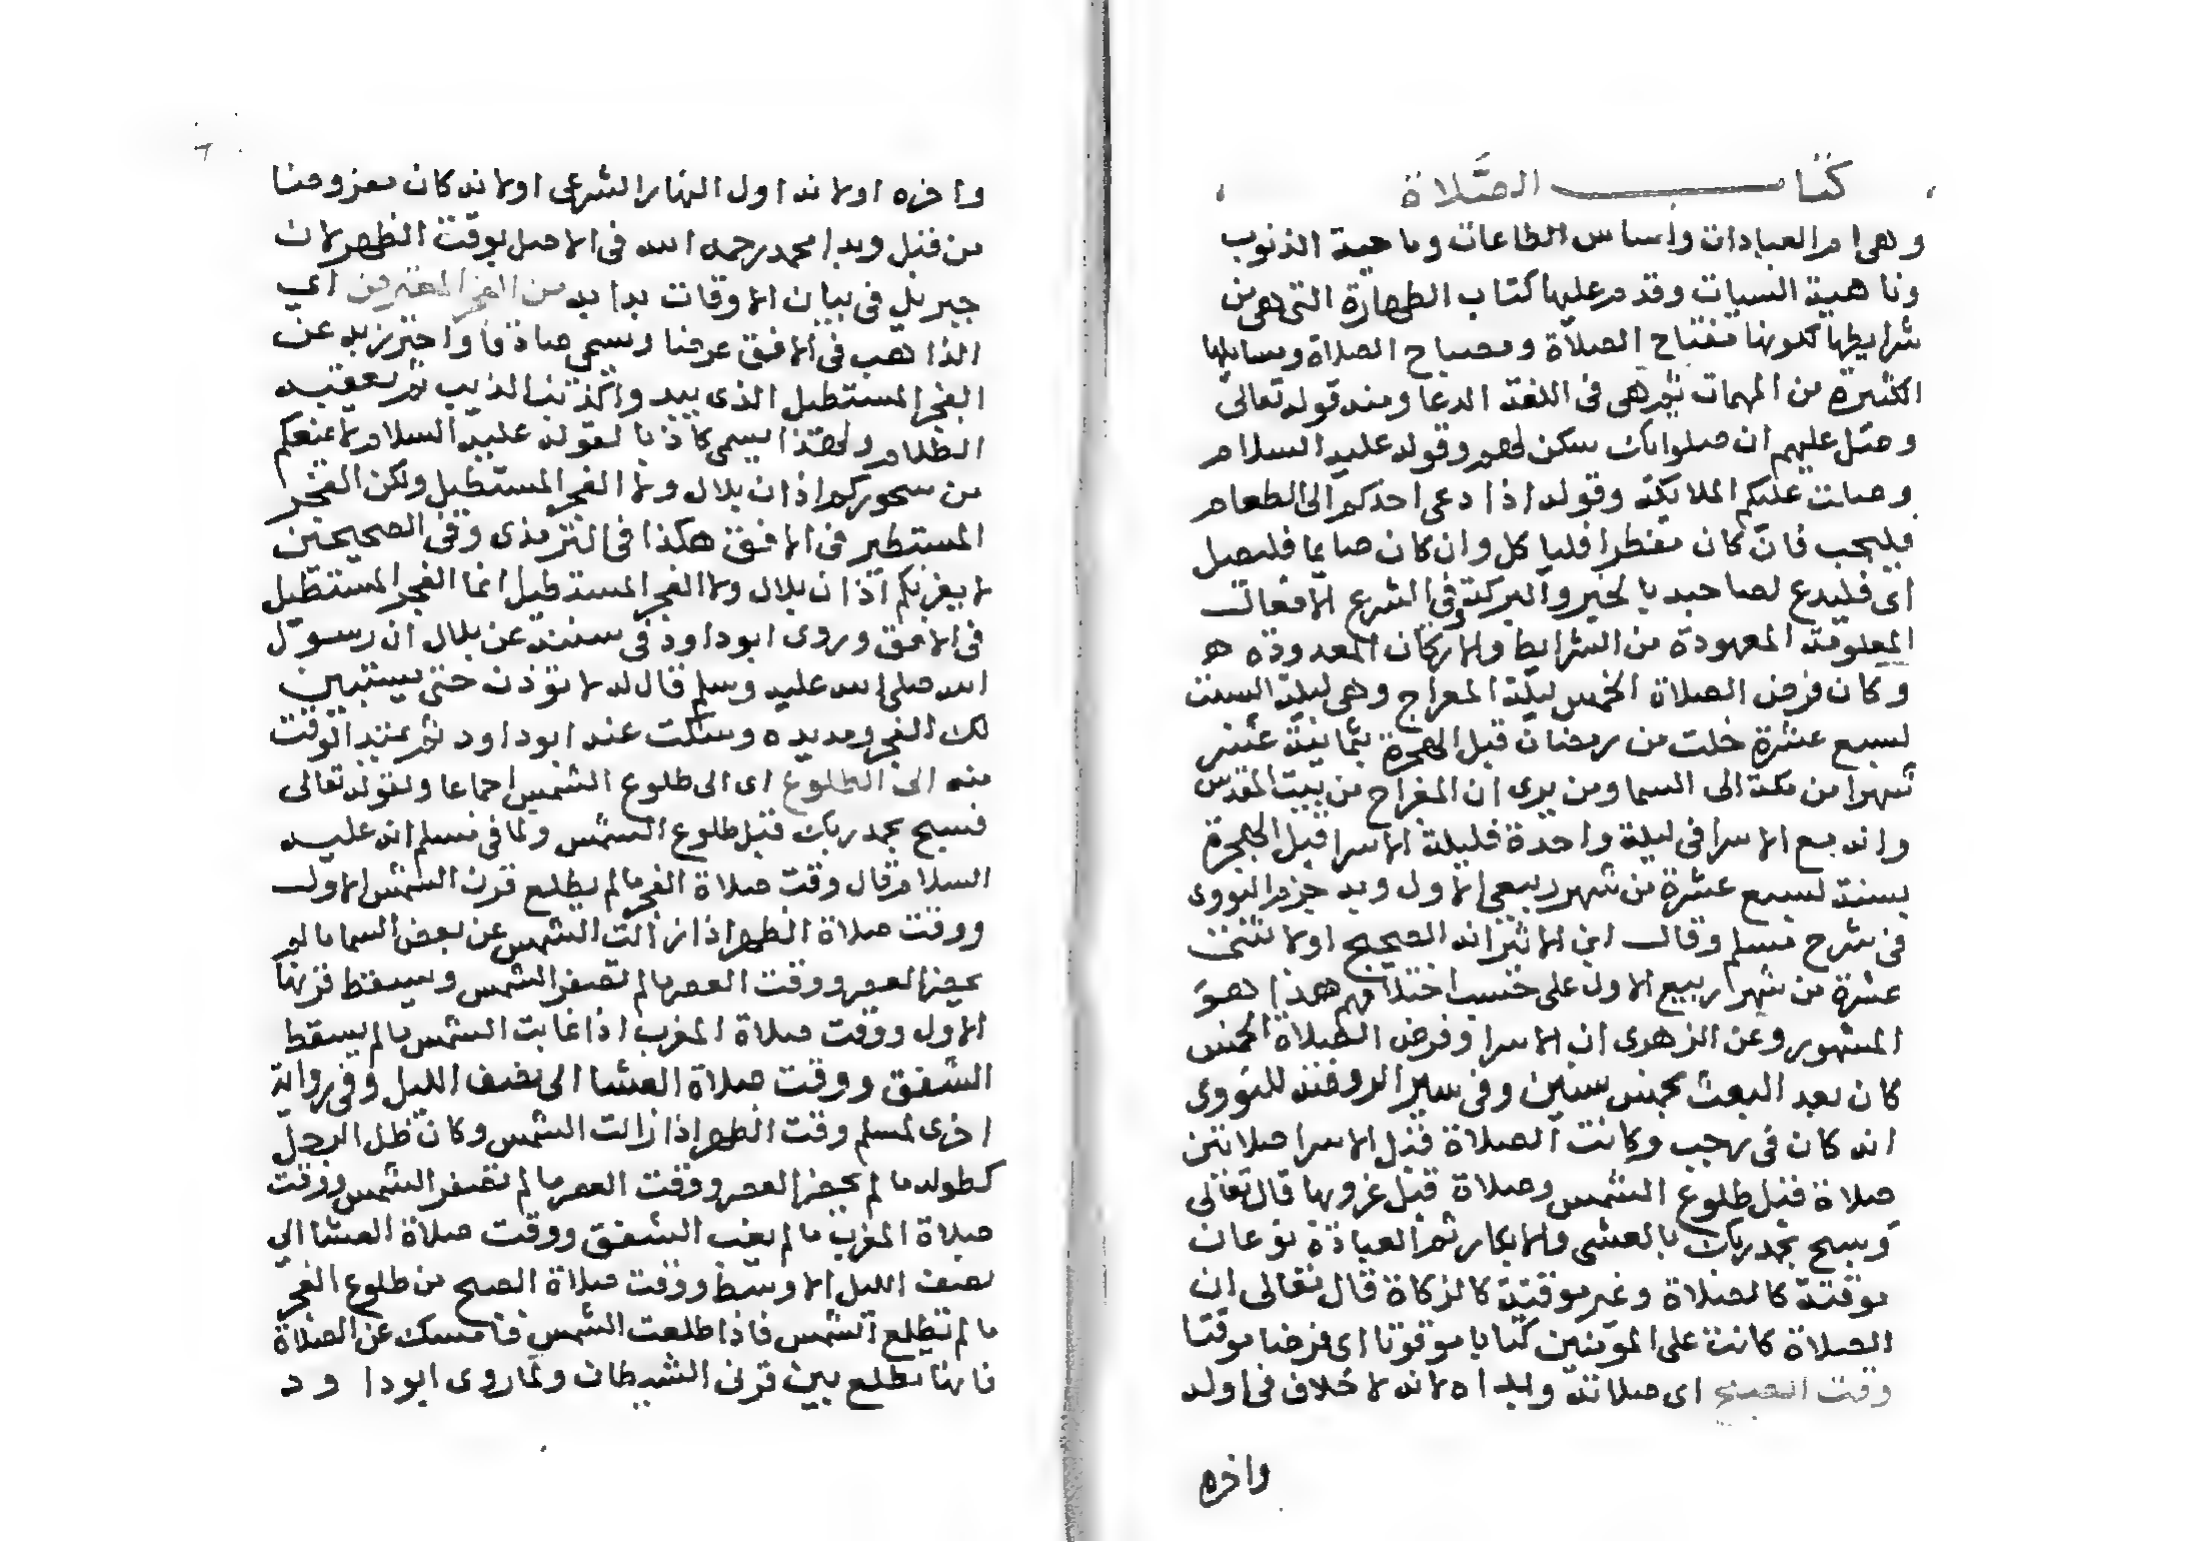 كتاب الصَّلاة
وهي ام العبادات واساس الطاعات وماحية الذنوب
وناهية السيات وقدم عليها كتاب الطهارة التي هي من
شرايطها لكونها مفتاح الصلاة ومصباح الصلاة ومسايلها
الكثيرة من المهمات ثم هي في اللغة الدعا ومنه قوله تعالى
وصل عليهم ان صلواتك سكن لهم وقوله عليه السلام
وصلت عليكم الملايكة وقوله اذا دعى احدكم الى الطعام
فليجب فان كان مفطرا فلياكل وان كان صايما فليصل
اى فليدع لصاحبه بالخير والبركة وفى الشرع الافعال
المعلومة المعهودة من الشرايط والاركان المعدودة هـ
وكان فرض الصلاة الخمس ليلة المعراج وهى ليلة السبت
لسبع عشرة خلت من رمضان قبل الهجرة بثمانية عشر
شهرا من مكة الى السما ومن يرى ان المعراج من بيت المقدس
وانه مع الاسرا فى ليلة واحدة فليلة الاسرا قبل الهجرة
بسنة لسبع عشرة من شهر ربيع الاول وبه جزم النووى
فى شرح مسلم وقال ابن الاثير انه الصحيح اولاثنتى
عشرة من شهر ربيع الاول على حسب اختلافهم هذا هو
المشهور وعن الزهرى ان الاسرا وفرض الصلاة الخمس
كان بعد البعث بخمس سنين وفى سير الروضة للنووى
انه كان فى رجب وكانت الصلاة قبل الاسرا صلاتين
صلاة قبل طلوع الشمس وصلاة قبل غروبها قال تعالى
وسبح بحمد ربك بالعشى والابكار ثم العبادة نوعان
موقتة كالصلاة وغير موقتة كالزكاة قال تعالى ان
الصلاة كانت على المومنين كتابا موقوتا اى فرضا موقتا
وقت الصبح اى صلاته وابداه لانه لا خلاف فى اوله
واخره
واخره اولانه اول النهار الشرعى اولانه كان مفروضا
من قبل وبدا محمد رحمه الله فى الاصل بوقت الظهر لان
جبريل فى بيان الاوقات بدا به من الفجر المعترض اي
الذاهب فى الافق عرضا ويسمى صادقا واحترز به عن
الفجر المستطيل الذى يبدو كذنب الذيب ثم يعقبه
الظلام ولهذا يسمى كاذبا لقوله عليه السلام لا يمنعكم
من سحوركم اذان بلال ولا الفجر المستطيل ولكن الفجر
المستطير فى الافق هكذا فى الترمذى وفى الصحيحين
لا يغرنكم اذان بلال ولا الفجر المستطيل انما الفجر المستطيل
فى الافق وروى ابوداود فى سننه عن بلال ان رسول
الله صلى الله عليه وسلم قال له لا توذن حتى يستبين
لك الفجر ومد يده وسكت عنه ابوداود ثم يمتد الوقت
منه الى الطلوع اى الى طلوع الشمس اجماعا ولقوله تعالى
فسبح بحمد ربك قبل طلوع الشمس ولما فى مسلم انه عليه
السلام قال وقت صلاة الفجر مالم يطلع قرن الشمس الاول
ووقت صلاة الظهر اذا زالت الشمس عن بطن السما مالم
يحضر العصر ووقت العصر مالم تصفر الشمس ويسقط قرنها
الاول ووقت صلاة المغرب اذا غابت الشمس مالم يسقط
الشفق ووقت صلاة العشا الى نصف الليل وفى رواية
اخرى لمسلم وقت الظهر اذا زالت الشمس وكان ظل الرجل
كطوله مالم يحضر العصر ووقت العصر مالم تصفر الشمس ووقت
صلاة المغرب مالم يغب الشفق ووقت صلاة العشا الى
نصف الليل الاوسط ووقت صلاة الصبح من طلوع الفجر
مالم تطلع الشمس فاذا طلعت الشمس فامسك عن الصلاة
فانها تطلع بين قرنى الشيطان ولما روى ابوداود